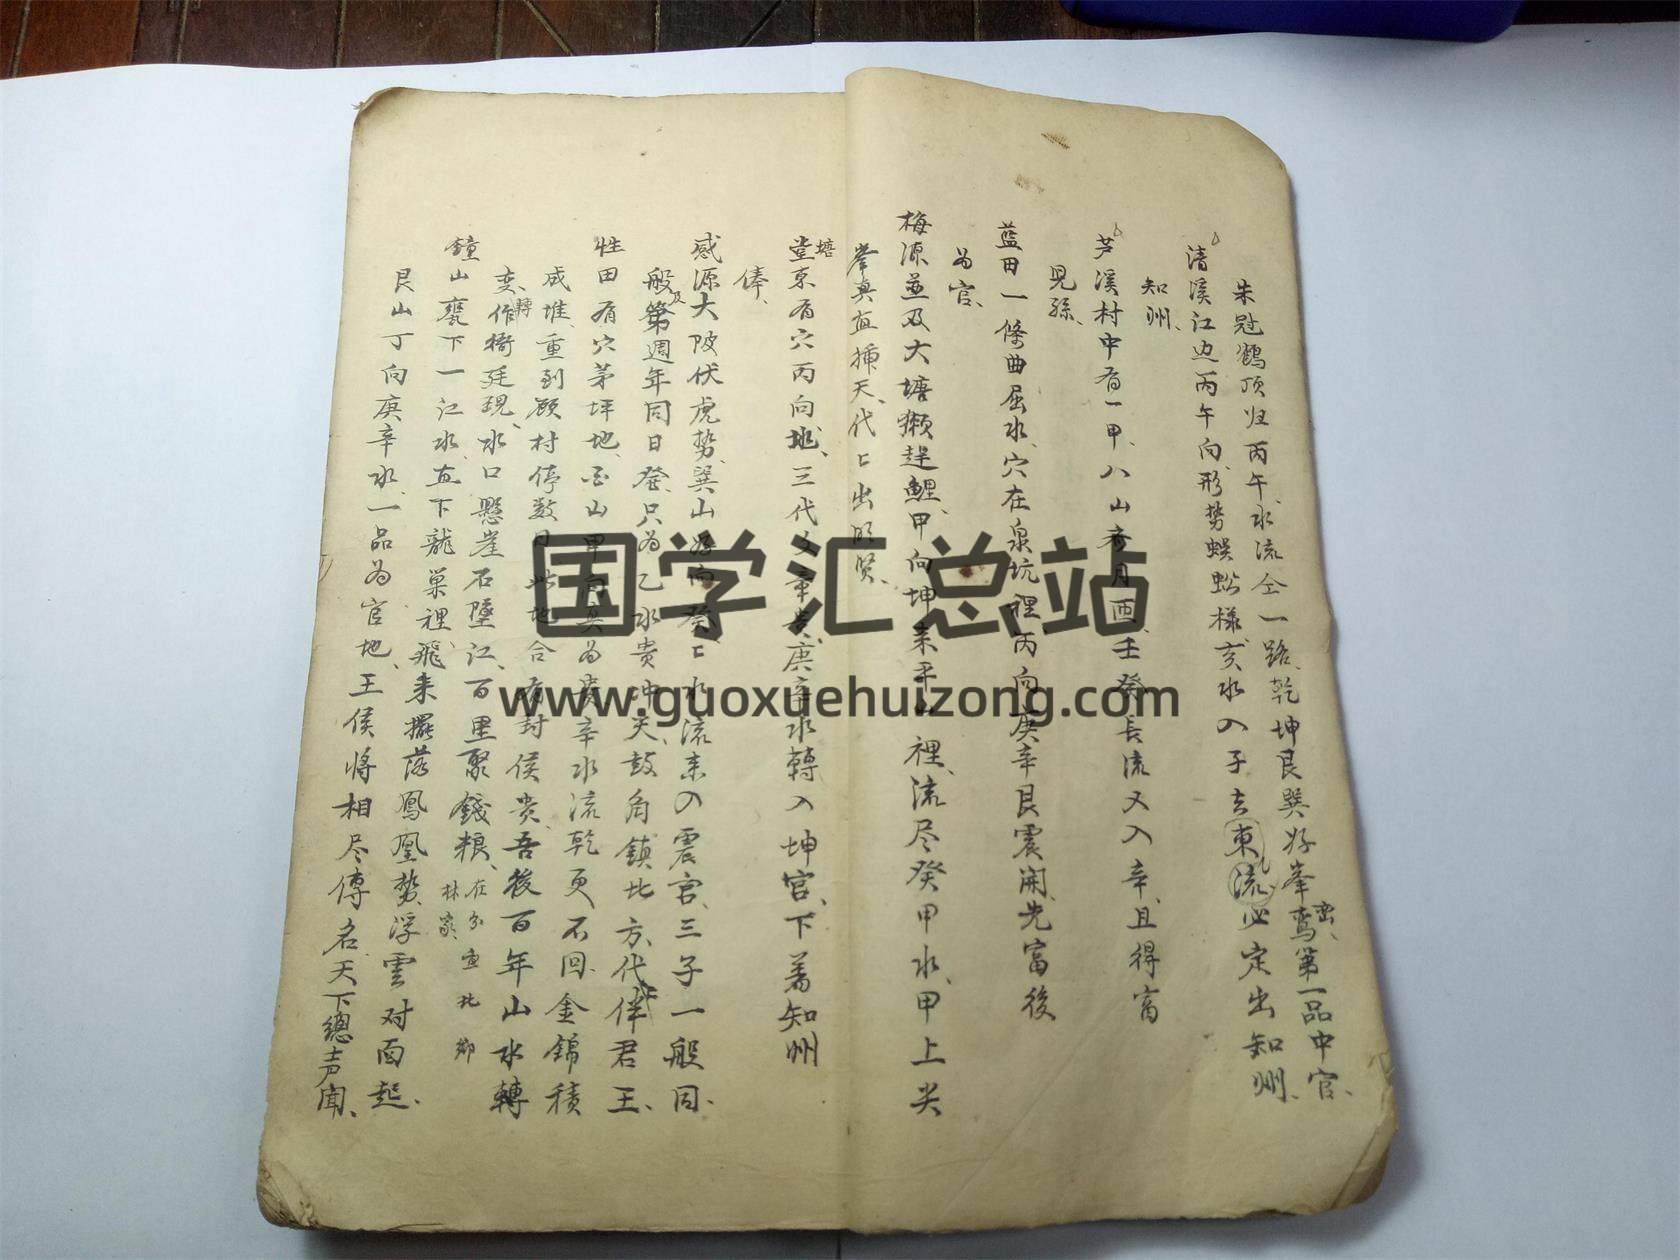 朱冠鶴頂归丙午、水流仝一路、乾坤艮巽好峯鸾第一品中官、
清溪江边丙午向、形势蜈蚣様、亥水入子去東流必定出知州、
知州、
芦溪村中有一甲、八山夸月酉、壬癸長流又入辛、且得富
見孫、
蓝田一條曲屈水、穴在泉坑裡、丙向庚辛艮震闹、先富後
为官、
梅源並及大塘獺趕鯉、甲向坤来平裡、流尽癸甲水、甲上尖
峯真直揷天、代〻出明賢、
塘
堂东有穴丙向地、三代子貴、庚辛水轉入坤宫、下着知州
俸、
感源大陂伏虎势、巽山好向癸、〻水流来入震宫、三子一般同
般及第週年同日登、只为乙水贵冲天、鼓角鎮北方、代〻伴君王、
性田有穴茅坪地、山里向為貴、辛水流乾更不回、金錦積
成堆、重到顾村停数日、此地合有封侯贵、吾後百年山水轉
变、轉作椅廷現、水口懸崖石墜江、百里聚錢粮、在分宜北鄉
林家、
鐘山甕下一江水、直下龍巢裡、飛来擺落鳳凰势、浮雲对面起、
艮山丁向庚辛水、一品为官地、王侯将相尽傳名、天下總声闻、
国学汇总站
www.guoxuehuizong.com